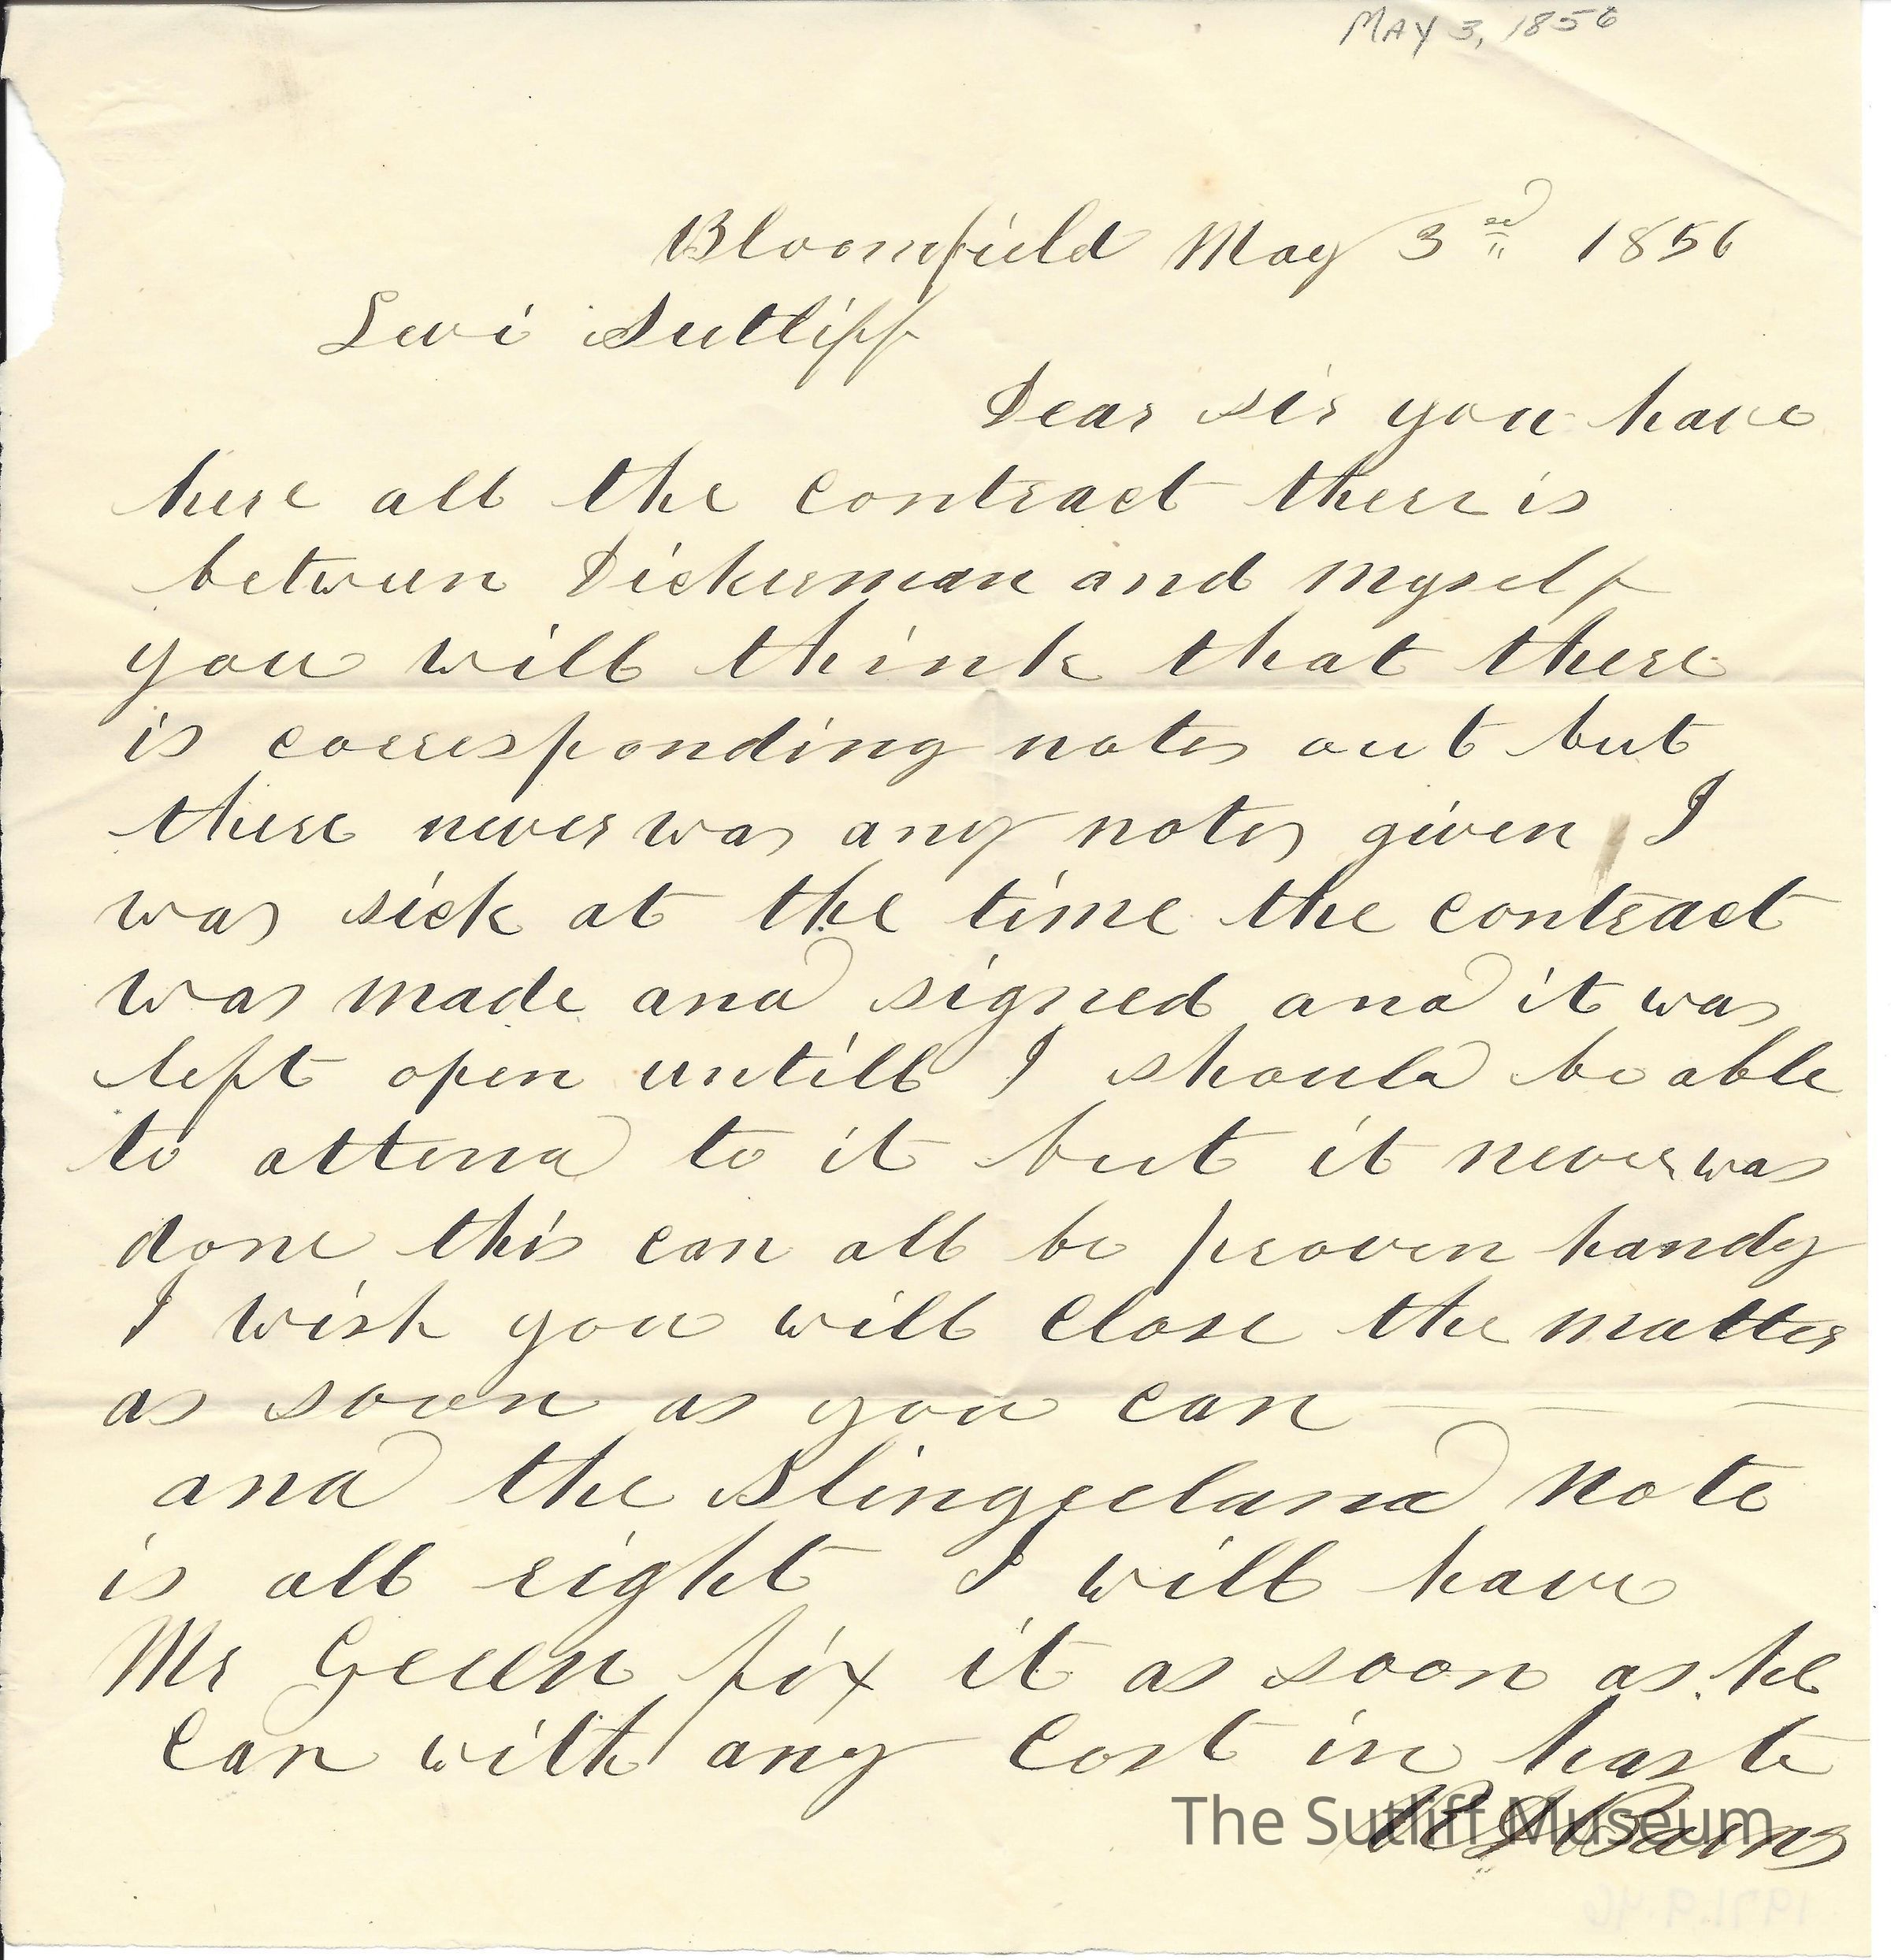 MAY 3, 1856
Bloomfield May 3rd 1856
Levi Sutliff
Dear sir you have
here all the contract there is
between Dickerman and myself
you will think that there
is corresponding notes out but
there never was any notes given I
was sick at the time the contract
was made and signed and it was
left open untill I should be able
to attend to it but it never was
done this can all be proven handy
I wish you will close the matter
as soon as you can
and the Slingerland note
is all right I will have
Mr Green fix it as soon as he
can with any cost in haste
Barns
The Sutliff Museum
1971.9.46